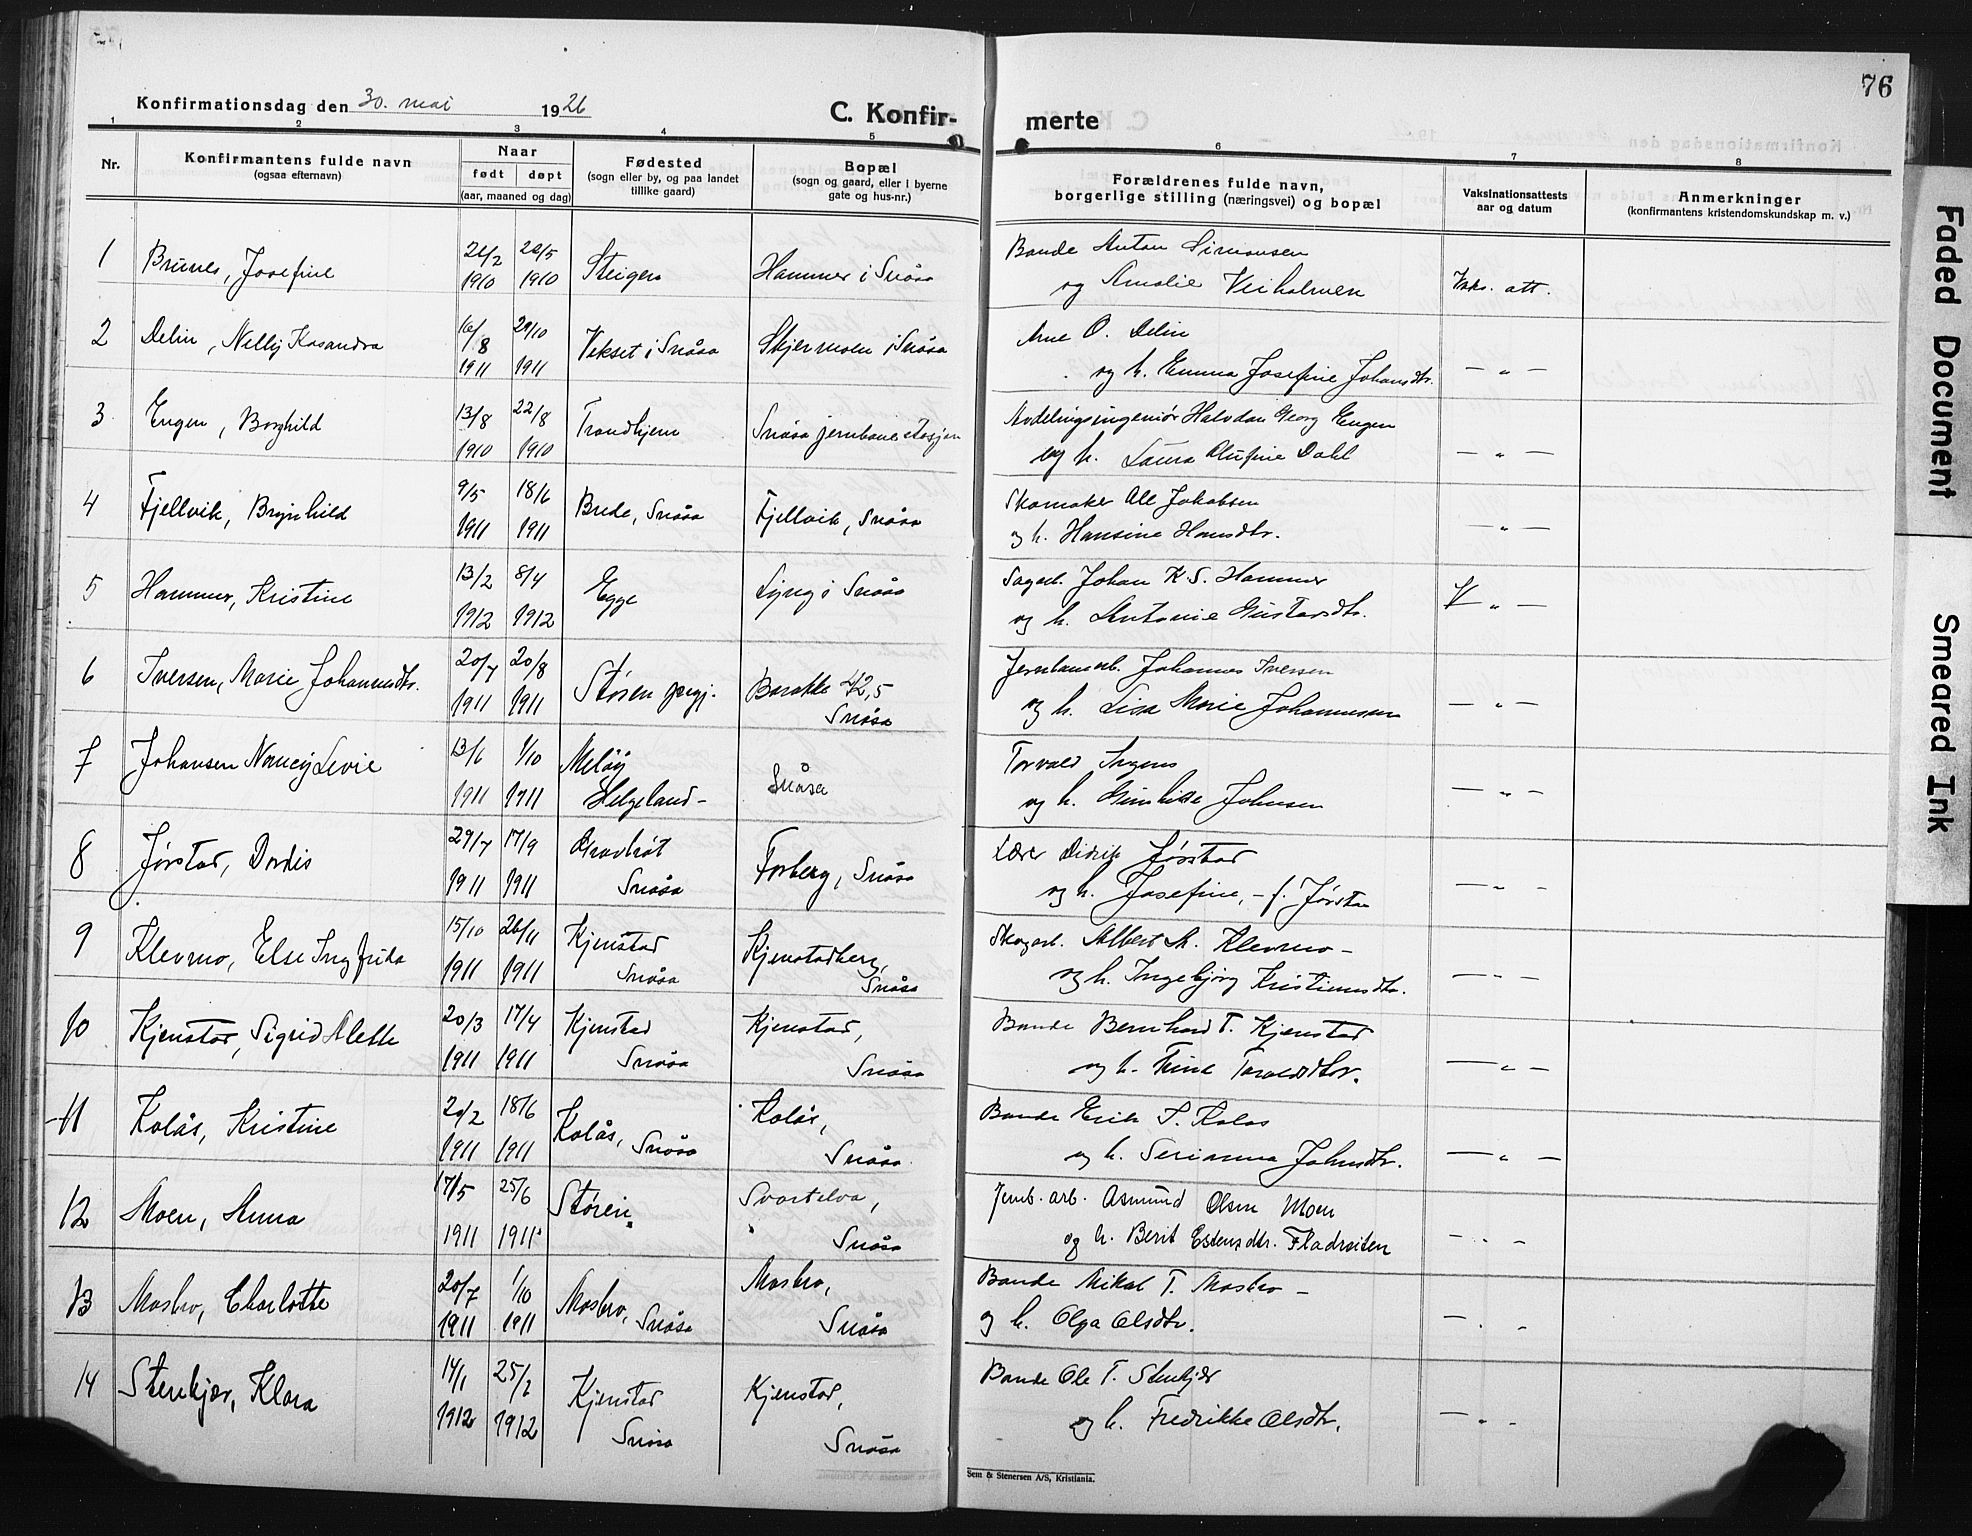 Konfirmationsdag den 30. mai 1926
C. Konfir-
merte
76
1 2 3 4 5 6 7 8
Nr.
Konfirmantens fulde navn
(ogsaa efternavn)
Naar
født døpt
(aar, maaned og dag)
Fødested
(sogn eller by, og paa landet
tillike gaard)
Bopæl
(sogn og gaard, eller i byerne
gate og hus-nr.)
Forældrenes fulde navn,
borgerlige stilling (næringsvei) og bopæl
Vaksinationsattests
aar og datum
Anmerkninger
(konfirmantens kristendomskundskap m. v.)
1 Brunes, Josefine 1910 1910 Steigen Hammer i Snåsa Bonde Anton Simonsen
og Amalie Veiholmen Vaks. att.
2 Delin, Nelly Kasandra 16/8 29/10
1911 1911 Vekset i Snåsa Skjermoen i Snåsa Arne O. Delin
og h. Emma Josefine Johansdtr. — „ —
3 Engen, Borghild 13/8 22/8
1910 1910 Trondhjem Snåsa jernbanestasjon Avdelingsingeniør Halvdan Georg Engen
og h. Laura Olufine Dahl — „ —
4 Fjellvik, Brynhild 9/5 18/6
1911 1911 Brede, Snåsa Fjellvik, Snåsa Skomaker Ole Jakobsen
og h. Hansine Hansdtr. — „ —
5 Hammer, Kristine 13/2 8/4
1912 1912 Egge Lyng i Snåsa Sagarb. Johan K. S. Hammer
og h. Antonie Gustavsdtr. „ —
6 Iversen, Marie Johannesdtr. 20/7 20/8
1911 1911 Støren prgj. Barakke 42,5
Snåsa Jernbanearb. Johannes Iversen
og h. Lisa Marie Johannesen — „ —
7 Johansen Nancy Levie 13/6 1/10
1911 1911 Meløy
Helgeland - Snåsa Torvald
og h. Johnsen — „ —
8 Jørstad, Dordis 29/7 17/9
1911 1911 Snåsa Forberg, Snåsa Lærer Didrik Jørstad
og h. Josefine, - f. Jørstad — „ —
9 Klevmo, Else Ingfrida 15/10 26/11
1911 1911 Kjenstad
Snåsa Kjenstadberg,
Snåsa Skogarb. Albert M. Klevmo -
og h. Ingebjørg Kristiansdtr. — „ —
10 Kjenstad, Sigrid Alette 20/3 17/4
1911 1911 Kjenstad
Snåsa Kjenstad,
Snåsa Bonde Bernhard T. Kjenstad
og h. Trine Toraldsdtr. — „ —
11 Kolås, Kristine 20/2 18/6
1911 1911 Kolås, Snåsa Kolås,
Snåsa Bonde Erik S. Kolås
og h. Serianna Johnsdtr. — „ —
12 Moen, Anna 17/5 25/6
1911 1911 Støren Svartelva,
Snåsa Jernb. arb. Asmund Olsen Moen
og h. Berit Estensdtr. Fladreiten - „ -
13 Mosbro, Charlotte 20/7 1/10
1911 1911 Mosbro, Snåsa Mosbro,
Snåsa Bonde Mikal T. Mosbro -
og h. Olga Olsdtr. — „ -
14 Stenkjær, Klara 14/1 25/2
1912 1912 Kjenstad
Snåsa Kjenstad,
Snåsa Bonde Ole T. Stenkjær
og h. Fredrikke Olsdtr. — „ -
Sem & Stenersen A/S, Kristiania.
Faded Document
Smeared Ink